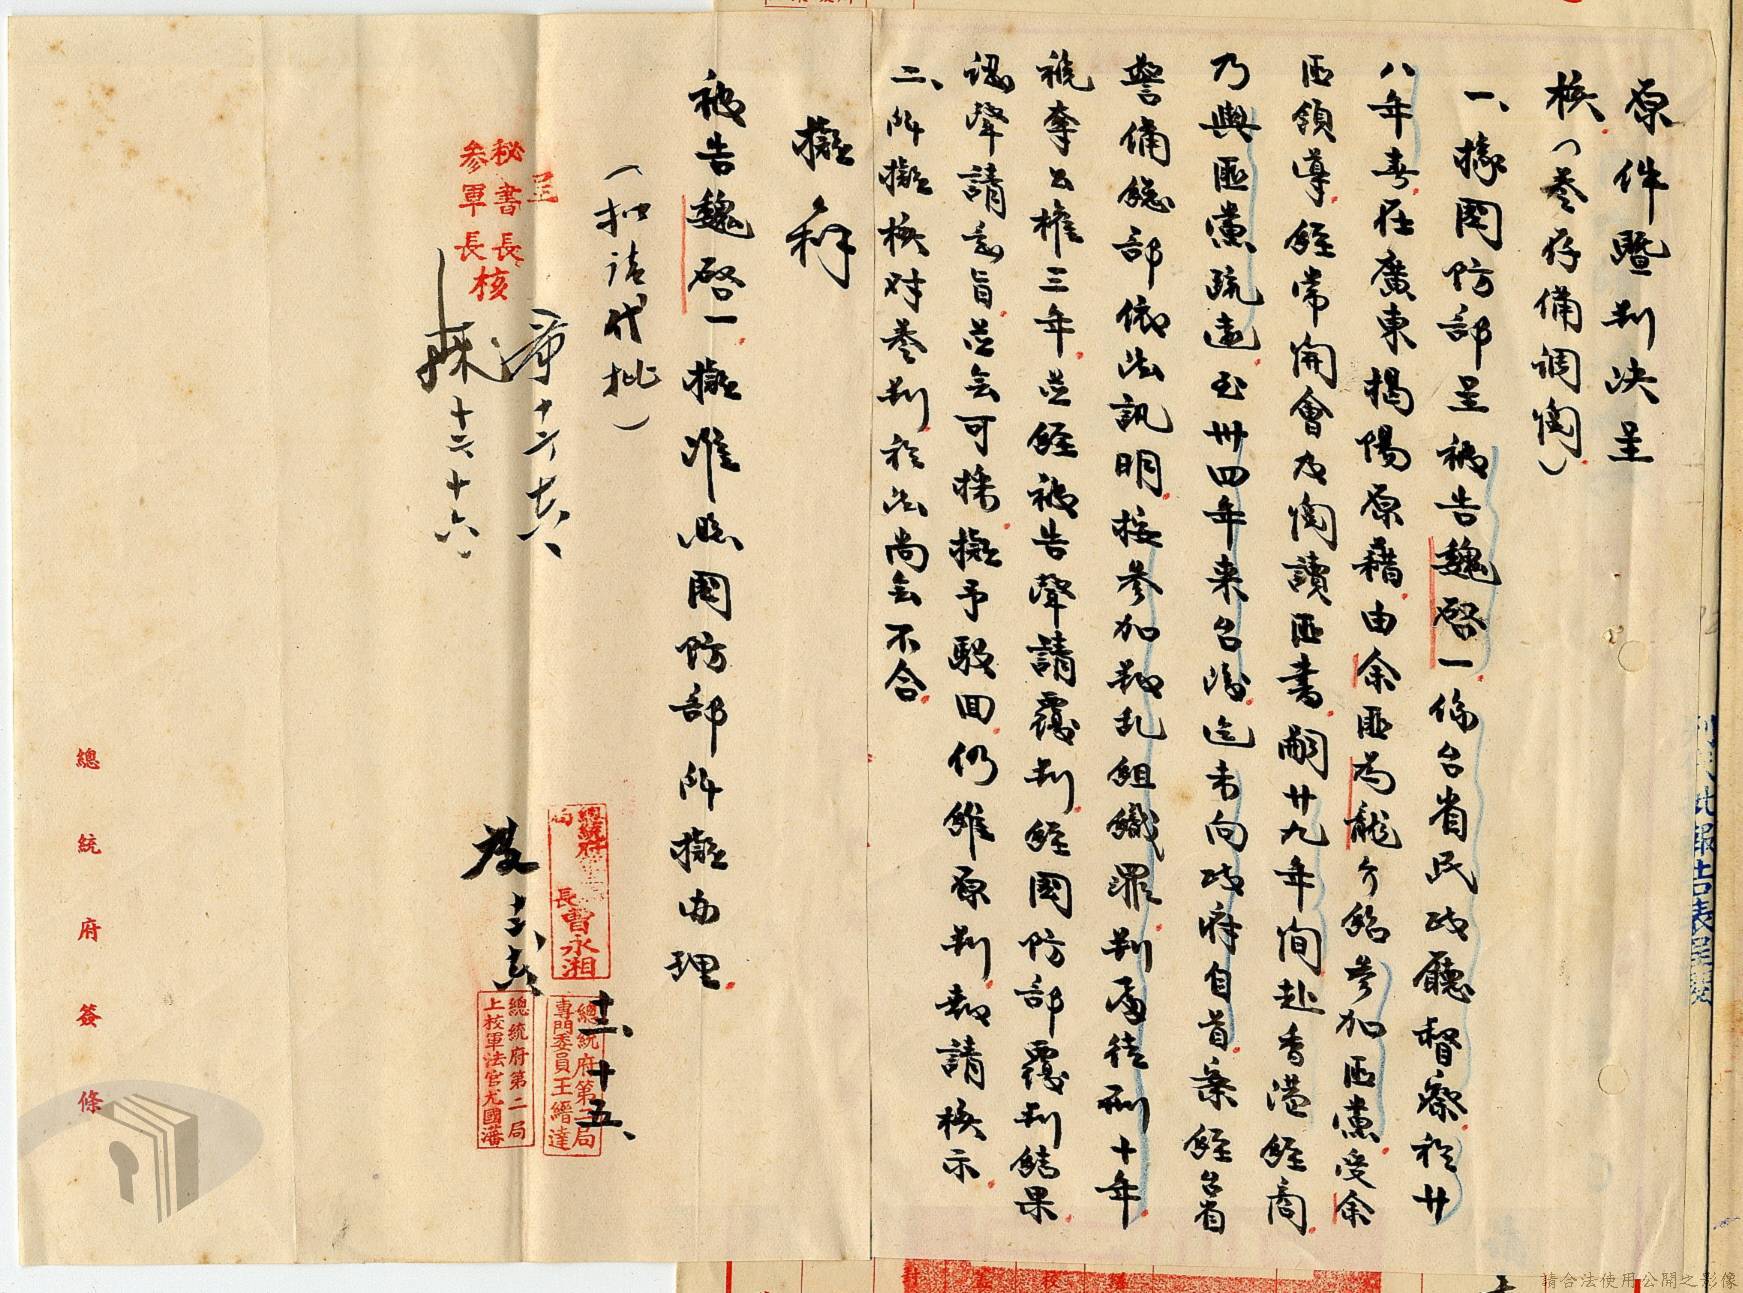 原件暨判決呈
核(卷存備調閱)
一、據國防部呈被告魏啓一係台省民政廳督察於廿
八年春在廣東揭陽原藉由余匪為龍介紹參加匪黨受余
匪領導經常開會及閱讀匪書嗣廿九年間赴香港經商
乃與匪黨疏遠至卅四年來台後迄未向政府自首案經台省
警備總部依法訊明按參加叛乱組織罪判處徒刑十年
褫奪公權三年並經被告聲請覆判經國防部覆判結果
認聲請意旨並無可採擬予駁回仍維原判報請核示
二、所擬核对卷判於法尚無不合
擬辦
被告魏啓一擬准照國防部所擬办理
(扣請代批)
呈
秘書長
參軍長
核
十二、十六
十二、十六
總統府
局長曹永湘
十二、十五、
總統府第二局
專門委員王縉達
總統府第二局
上校軍法官尤國藩
總統府簽條
請合法使用公開之影像